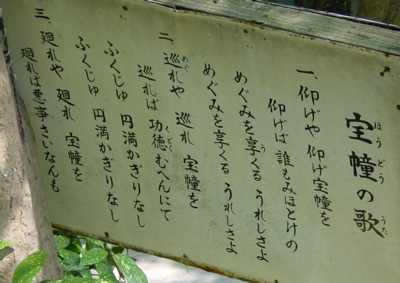 宝幢の歌
一、仰げや 仰げ 宝幢を
仰げば 誰もみほとけの
めぐみを享くる うれしさよ
めぐみを享くる うれしさよ
二、巡礼や 巡礼 宝幢を
巡礼ば 功徳むへんにて
ふくじゅ 円満かぎりなし
ふくじゅ 円満かぎりなし
三、廻礼や 廻礼 宝幢を
廻礼ば 悪事さいなんも